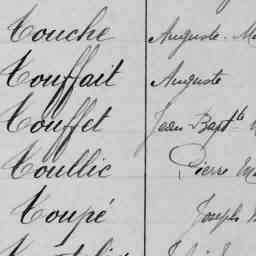 Touche Auguste
Touffait Auguste
Touffet Jean Bapt.te
Toullic Pierre
Toupé Joseph